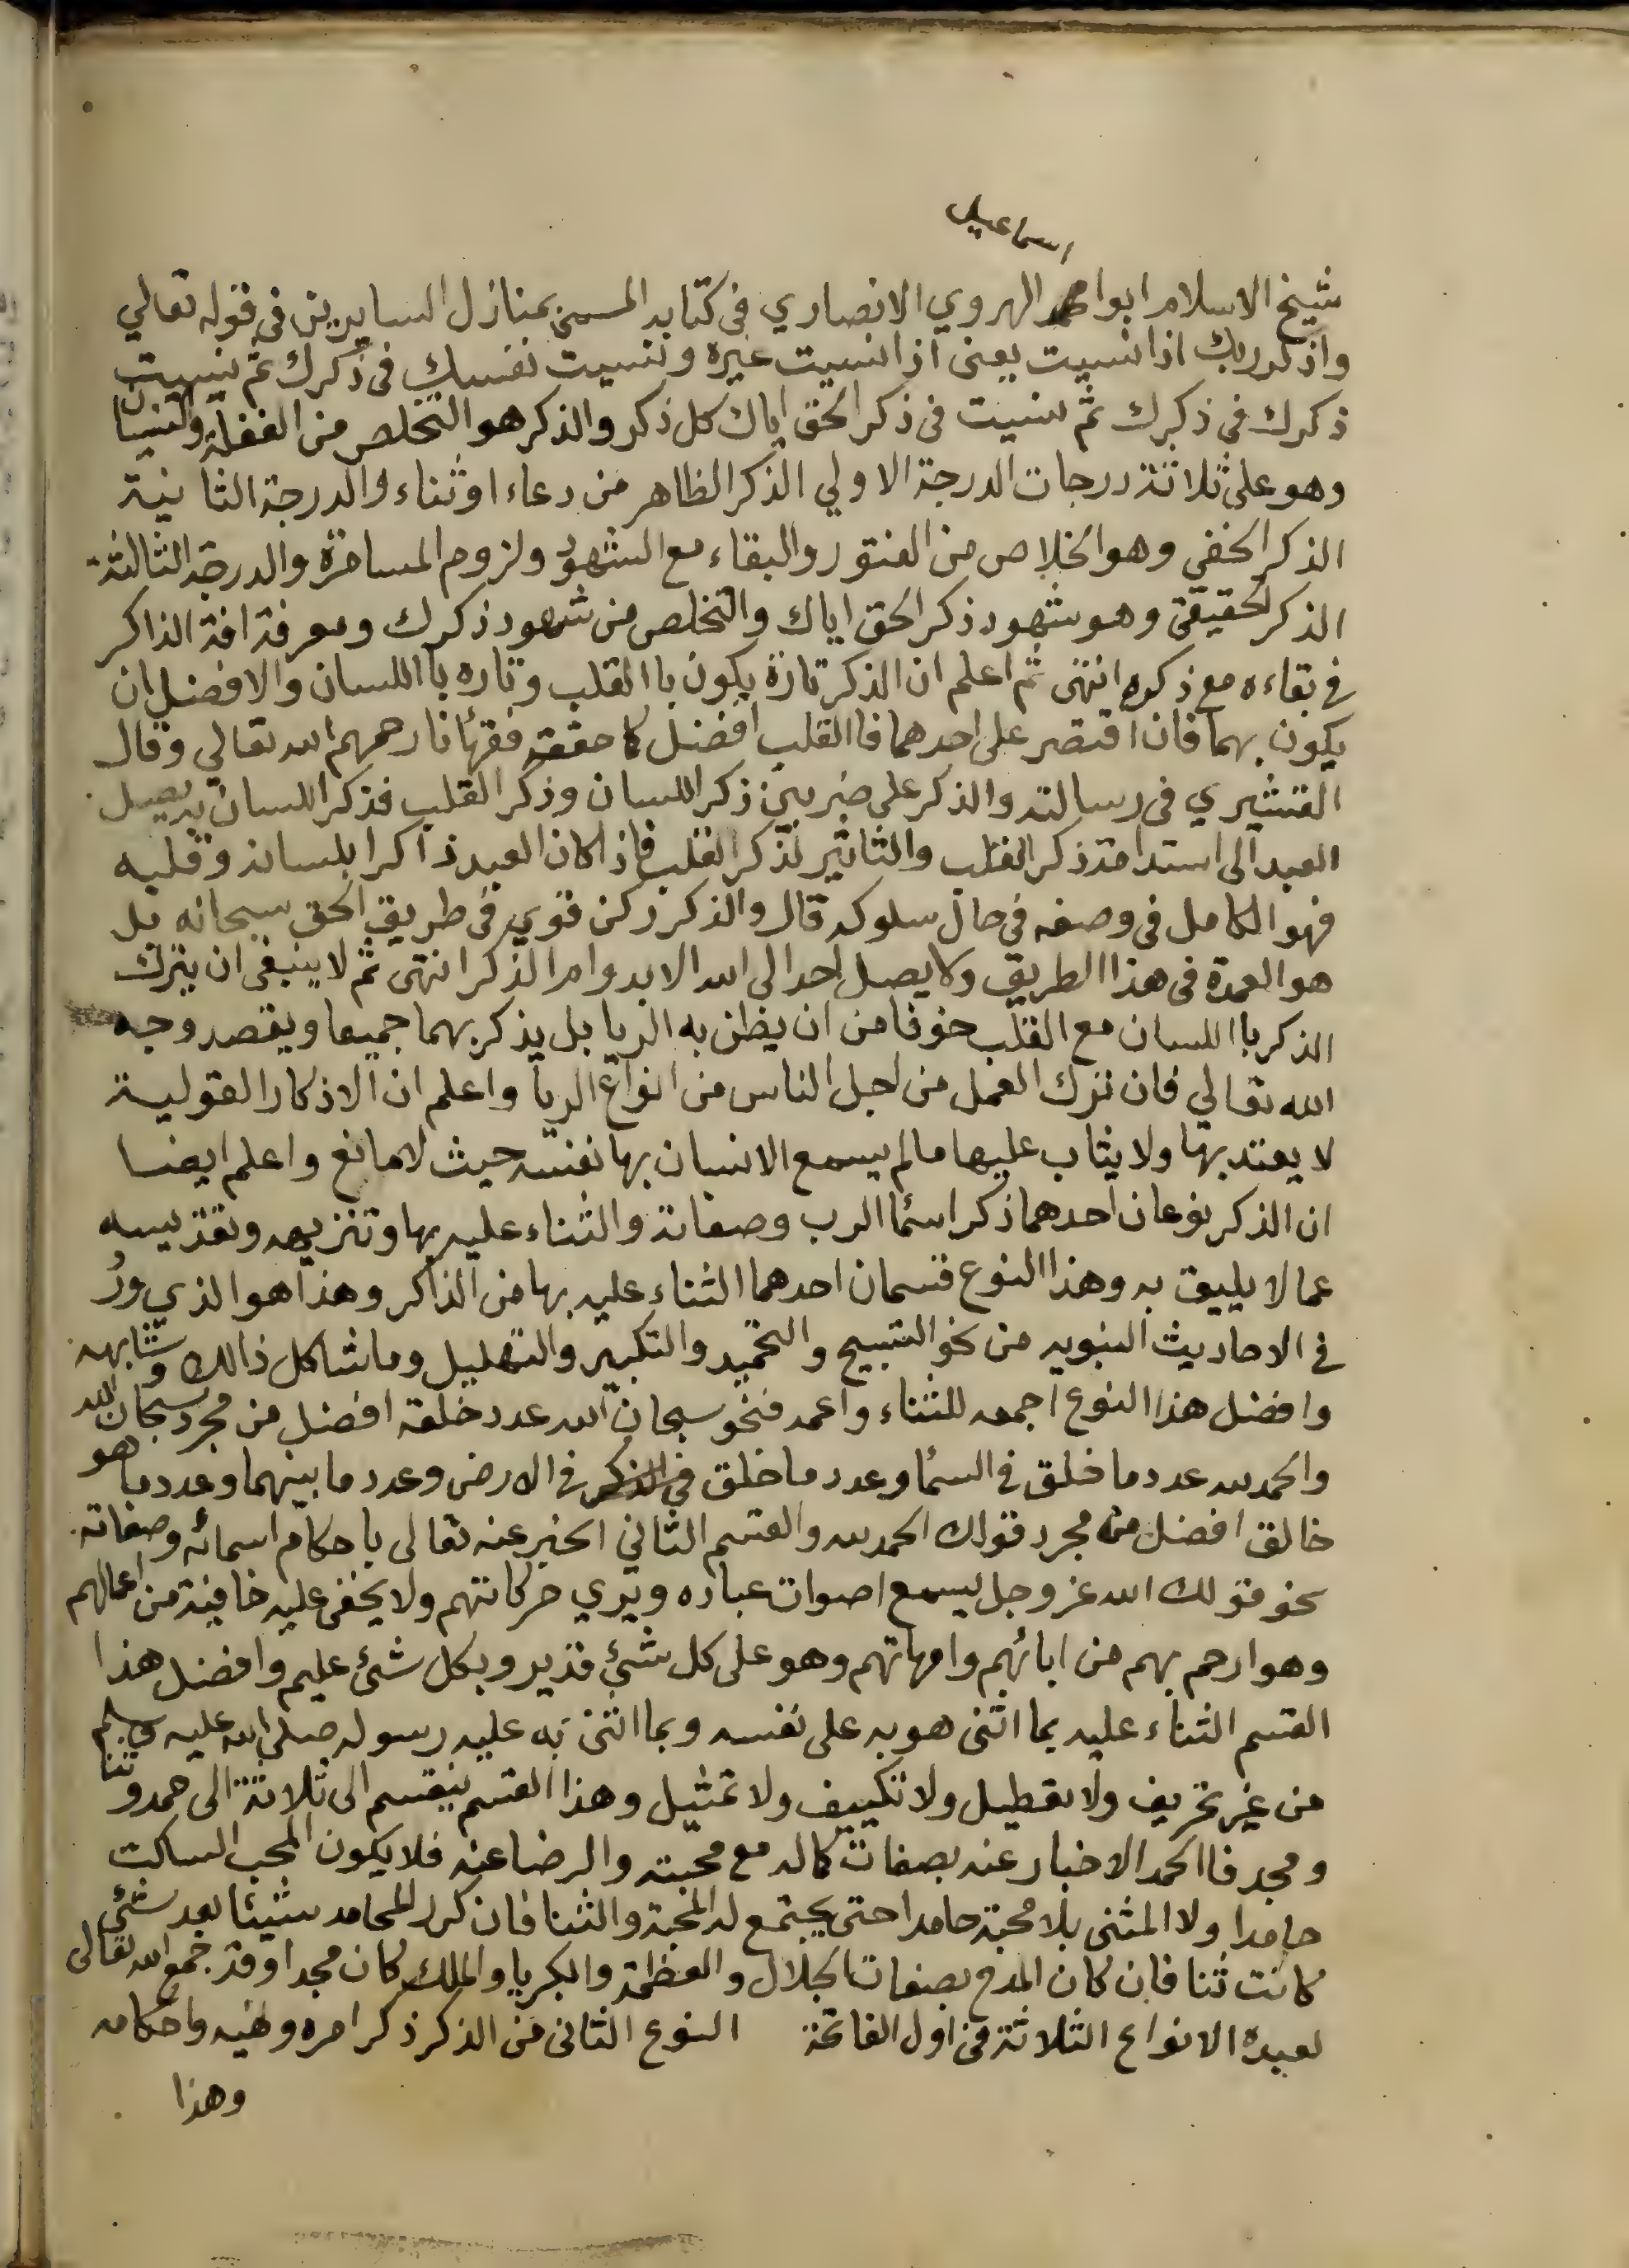 اسماعيل
شيخ الاسلام ابوا محمد الهروي الانصاري في كتابه المسمى بمنازل السايرين في قوله تعالي
واذكر ربك اذا نسيت يعنى اذا نسيت غيره ونسيت نفسك في ذكرك ثم نسيت
ذكرك في ذكرك ثم نسيت في ذكر الحق اياك كل ذكر والذكر هو التخلص من الغفلة والنسيان
وهو على ثلاثة درجات الدرجة الاولي الذكر الظاهر من دعاء او ثناء والدرجة الثانية
الذكر الخفي وهو الخلاص من الفتور والبقاء مع الشهود ولزوم المسامرة والدرجة الثالثة
الذكر الحقيقى وهو شهود ذكر الحق اياك والتخلص من شهود ذكرك ومعرفة افة الذاكر
في بقاءه مع ذكره انتهى ثم اعلم ان الذكر تارة يكون با القلب وتاره با اللسان والافضل ان
يكون بهما فان اقتصر على احدهما فا القلب افضل كما حققه فقهائنا رحمهم الله تعالي وقال
القشيري في رسالته والذكر على ضربين ذكر اللسان وذكر القلب فذكر اللسان به يصل
العبد الى استدامة ذكر القلب والتاثير لذكر القلب فاذا كان العبد ذاكرا بلسانه وقلبه
فهو الكامل في وصفه في حال سلوكه قال والذكر ركن قوي في طريق الحق سبحانه بل
هو العمدة في هذا الطريق ولا يصل احد الى الله الا بدوام الذكر انتهى ثم لا ينبغى ان يترك
الذكر با اللسان مع القلب خوفا من ان يظن به الريا بل يذكر بهما جميعا ويقصد وجه
الله تعالي فان ترك العمل من اجل الناس من انواع الريا واعلم ان الاذكار القولية
لا يعتد بها ولا يثاب عليها مالم يسمع الانسان بها نفسه حيث لا مانع واعلم ايضا
ان الذكر نوعان احدهما ذكر اسما الرب وصفاته والثناء عليه بها وتنزيهه وتقديسه
عما لا يليق به وهذا النوع قسمان احدهما الثناء عليه بها من الذاكر وهذا هو الذي ورد
في الاحاديث النبويه من نحو التسبيح والتحميد والتكبير والتهليل وما شاكل ذالك وشابهه
وافضل هذا النوع اجمعه للثناء واعمه فنحو سبحان الله عدد خلقه افضل من مجرد سبحان الله
والحمد لله عدد ما خلق في السما وعدد ما خلق في الارض وعدد ما بينهما وعدد ما هو
خالق افضل من مجرد قولك الحمد لله والقسم الثاني الخبر عنه تعالى باحكام اسمائه وصفاته
نحو قولك الله عز وجل يسمع اصوات عباده ويري حركاتهم ولا يخفى عليه خافية من اعمالهم
وهو ارحم بهم من ابائهم وامهاتهم وهو على كل شئ قدير وبكل شئ عليم وافضل هذا
القسم الثناء عليه بما اثنى هو به على نفسه وبما اثنى به عليه رسوله صلى الله عليه وسلم
من غير تحريف ولا تعطيل ولا تكييف ولا تمثيل وهذا القسم ينقسم الى ثلاثة الى حمد وثنا
ومجد فا الحمد الاخبار عنه بصفات كماله مع محبته والرضا عنه فلا يكون المحب الساكت
حامدا ولا المثنى بلا محبة حامدا حتى يجتمع له المحبة والثنا فان كرر المحامد شيئا بعد شئي
كانت ثنا فان كان المدح بصفات الجلال والعظمة والكبريا والملك كان مجدا وقد جمع الله تعالى
لعبده الانواع الثلاثة في اول الفاتحة النوع الثانى من الذكر ذكر امره ونهيه واحكامه
وهذا